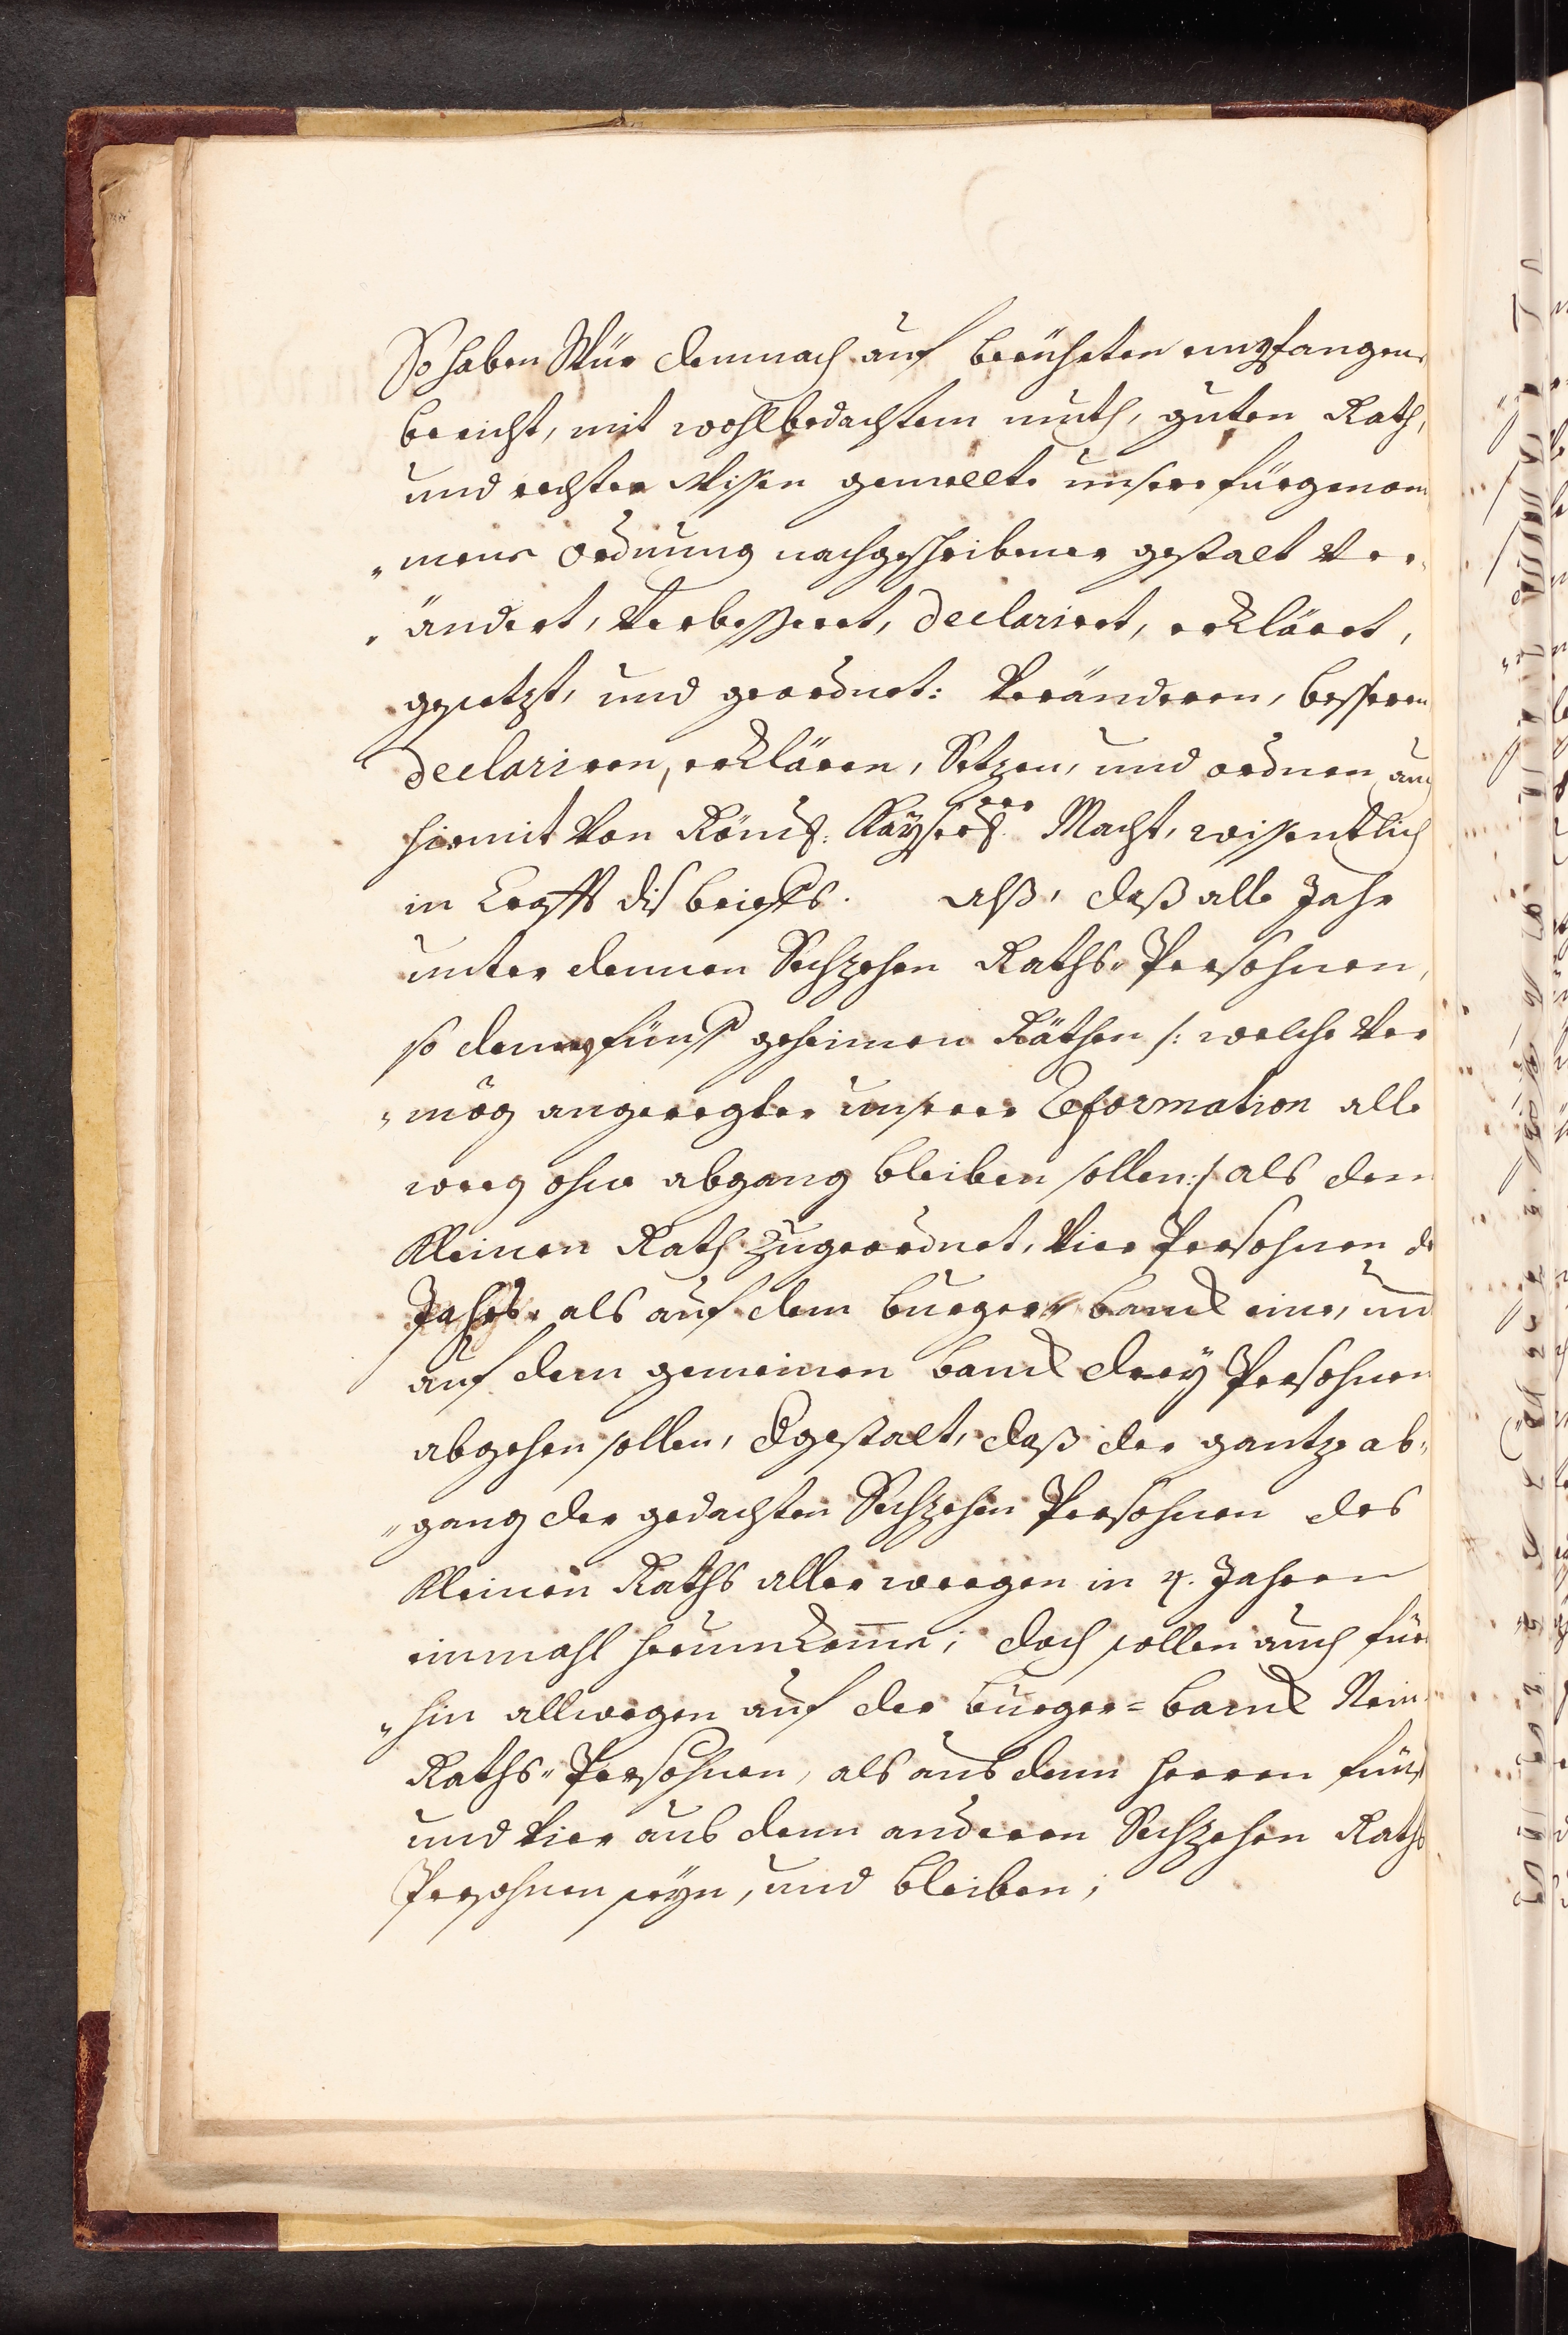 So haben Wür demnach auf berührten empfangen
bericht, mit wohlbedachtem muth, guten Rath,
und rechter Wißen gemellte unsere fürgenom
„mene Ordnung nachgeschribener gestalt Ver„
„ändert, Verbesseret, declariret, erkläret,
gesetzt, und geordnet: Veränderen, besseren
declariren, erklären, Setzen, und ordnen auch
hiemit Von Römisch: Kayserl. Macht, wissentlich
in Krafft diß brieffs. Alß, daß alle Jahr
unter dennen Sechzehen Raths-Persohnen,
so denen fünff geheimen Räthen /: welche Ver
„mög angeregter unserer Reformation alle
weeg ohne abgang bleiben sollen :/ als dem
Kleinen Rath zugeordnet, Vier Persohnen des
Jahrs, als auf dem burger-banck eine, und
auf dem gemeinen banck drey Persohnen
abgehen sollen, dergestalt, daß der gantze ab„
„gang der gedachten Sechzehen Persohnen des
Kleinen Raths aller weegen in 4. Jahren
einmahl herumkomme; doch sollen auch für
„hin allwegen auf der burger=banck Nein
Raths„Persohnen, als aus denn Herren fünff
und Vier aus denn anderen Sechzehen Raths
Persohnen seyn, und bleiben;